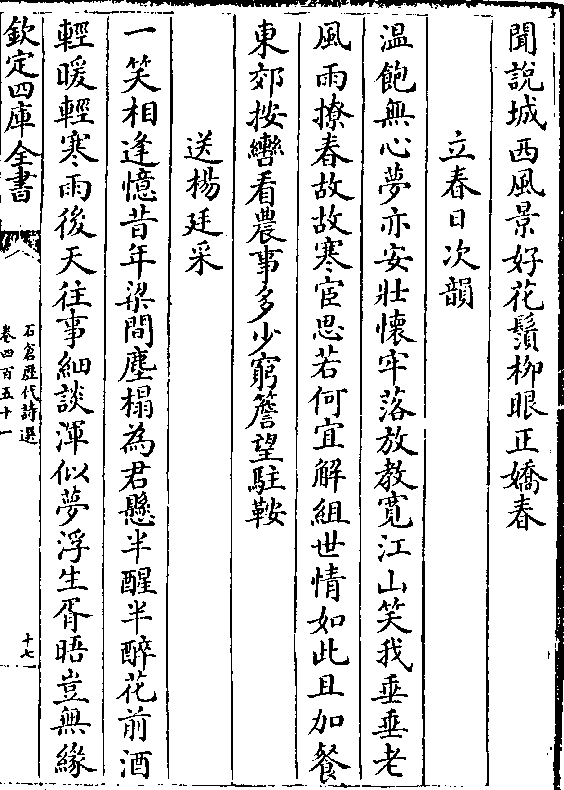 聞說城西風景好花鬚柳眼正嬌春
立春日次韻
温飽無心夢亦安壯懷牢落放教寛江山笑我垂垂老
風雨撩春故故寒宦思若何宜解組世情如此且加餐
東郊按轡看農事多少窮簷望駐鞍
送楊廷采
一笑相逢憶昔年梁間塵榻為君懸半醒半醉花前酒
輕暖輕寒雨後天往事細談渾似夢浮生胥晤豈無緣
欽定四庫全書
石倉歴代詩選
卷四百五十一
十七